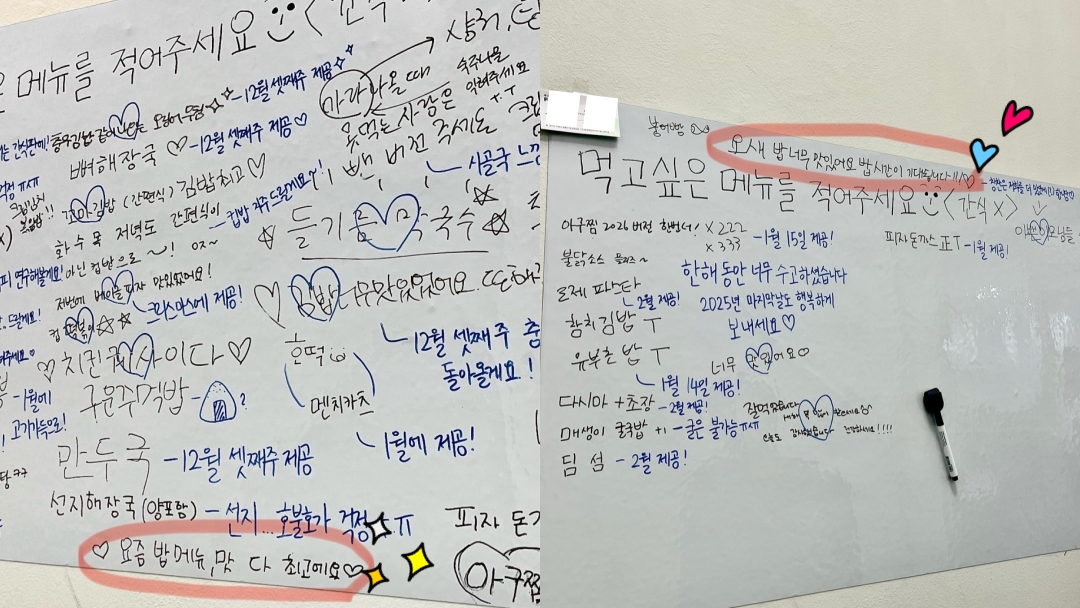 메뉴를 적어주세요
12월 셋째주 제공
뼈해장국 ♡ -12월 셋째주 제공♡
마라
나올 때
숙주나물
익혀주세요
ㅠㅠ
못먹는 사람은
버전 주세요
꼬마김밥 (간편식) 김밥최고♡
화 수 목 저녁도 간편식이
아닌 컵밥으로 ~!
컵밥 자주드릴게요~!
☆ 들기름 막국수 ☆
저번에 베이글피자 맛있었어요!
크리스마스에 제공!
♡ 김밥 너무맛있었어요
♡치킨 사이다♡
구운주먹밥 - ?
-1월에
호떡
멘치카츠
1월에 제공!
12월 셋째주
돌아올게요!
만두국 -12월 셋째주 제공
선지해장국 (양포함) - 선지... 호불호가 걱정..ㅠ
♡ 요즘 밥메뉴, 맛 다 최고에요♡
피자 돈
아구찜
붕어빵
요새 밥 너무 맛있어요 밥시간이 기다려집니다!!!♡
먹고싶은 메뉴를 적어주세요 (간식 X)
아구찜 2026 버전 한번더! x 222
x 333
-1월 15일 제공!
피자돈까스 正T -1월 제공!
불닭소스 플리즈~
로제 파스타
2월 제공!
한해 동안 너무 수고하셨습니다
2025년 마지막날도 행복하게
보내세요♡
참치김밥 T
유부초밥 T
1월 14일 제공!
너무 맛있어요♡
다시마 +초장 -2월 제공!
매생이 굴국밥 +1 -굴은 불가능ㅠㅠ
잘먹었습니다
오늘도 감사했습니다 건강하세요!!!!
딤섬 -2월 제공!